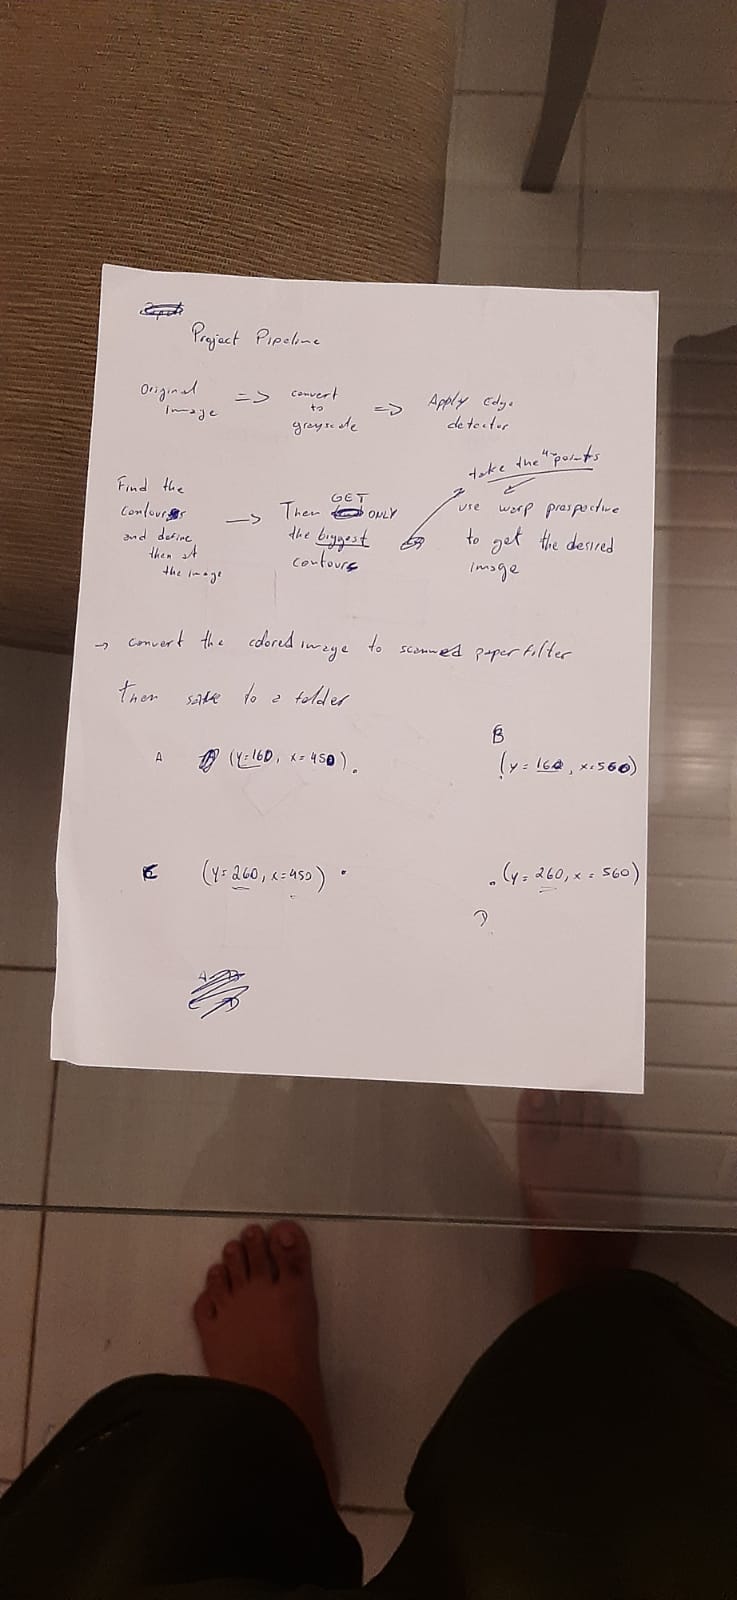 Project Pipeline
Original image => convert to grayscale => Apply Edge detector
Find the
contours
and define
them at
the image
-> Then GET ONLY
the biggest
contours
take the "4" points
use warp prespective
to get the desired
image
→ convert the colored image to scanned paper filter
then save to a folder
A (y=160, x=450).
B
(y=160, x=560)
C (y=260, x=450) .
. (y=260, x=560)
D